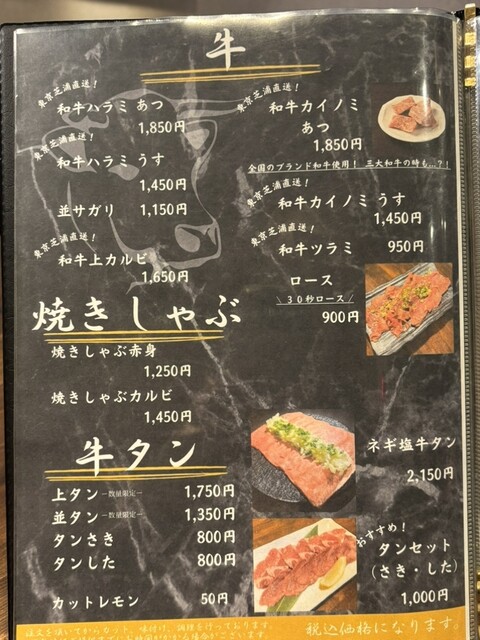 牛
東京芝浦直送！
和牛ハラミ あつ
1,850円
東京芝浦直送！
和牛ハラミ うす
1,450円
並サガリ 1,150円
東京芝浦直送！
和牛上カルビ
1,650円
東京芝浦直送！
和牛カイノミ
あつ
1,850円
全国のブランド和牛使用！ 三大和牛の時も…？！
東京芝浦直送！
和牛カイノミ うす
1,450円
東京芝浦直送！
和牛ツラミ 950円
ロース
\ 30秒ロース /
900円
焼きしゃぶ
焼きしゃぶ赤身
1,250円
焼きしゃぶカルビ
1,450円
牛タン
上タン －数量限定－ 1,750円
並タン －数量限定－ 1,350円
タンさき 800円
タンした 800円
カットレモン 50円
ネギ塩牛タン
2,150円
おすすめ！
タンセット
(さき・した)
1,000円
税込価格になります。